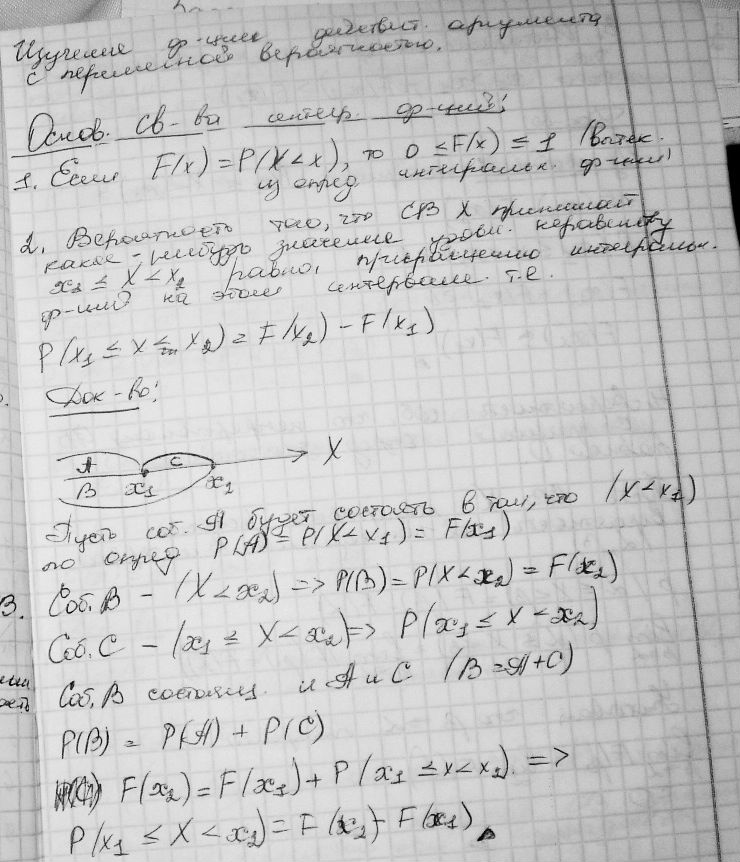 Изучение ф-ции действит. аргумента
с переменной вероятностью.
Основ. св-ва интегр. ф-ций:
1. Если F(x) = P(X < x), то 0 ≤ F(x) ≤ 1 (вытек.
из опред интегральн. ф-ции)
2. Вероятность того, что СВ X принимает
какое-нибудь значение удовл. неравенству
x₁ ≤ X < x₂ равно, приращению интегральн.
ф-ции на этом интервале т.е.
P(x₁ ≤ x ≤ x₂) = F(x₂) - F(x₁)
Док-во:
A C X
B x₁ x₂
Пусть соб. A будет состоять в том, что (X < x₁)
по опред P(A) = P(X < x₁) = F(x₁)
Соб. B - (X < x₂) => P(B) = P(X < x₂) = F(x₂)
Соб. C - (x₁ ≤ X < x₂) => P(x₁ ≤ X < x₂)
Соб. B состоящ. и A и C (B = A + C)
P(B) = P(A) + P(C)
F(x₂) = F(x₁) + P(x₁ ≤ x < x₁). =>
P(x₁ ≤ X < x₂) = F(x₂) - F(x₁)